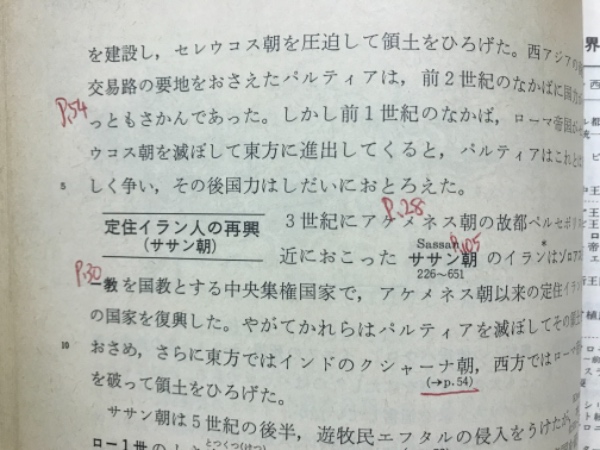 を建設し，セレウコス朝を圧迫して領土をひろげた。西アジアの
交易路の要地をおさえたパルティアは，前2世紀のなかばに国力
P.54
っともさかんであった。しかし前1世紀のなかば，ローマ帝国が
ウコス朝を滅ぼして東方に進出してくると，パルティアはこれと
5
しく争い，その後国力はしだいにおとろえた。
P.28
定住イラン人の再興
(ササン朝)
3世紀にアケメネス朝の故都ペルセポリ
Sassan
P.105
近におこった ササン朝 のイランはゾロアス
226〜651
P.30
ー教を国教とする中央集権国家で，アケメネス朝以来の定住イラン
の国家を復興した。やがてかれらはパルティアを滅ぼしてその
10
おさめ，さらに東方ではインドのクシャーナ朝，西方ではローマ
(→p.54)
を破って領土をひろげた。
ササン朝は5世紀の後半，遊牧民エフタルの侵入をうけたが，
とつくつ(けつ)
ロー1世の
界